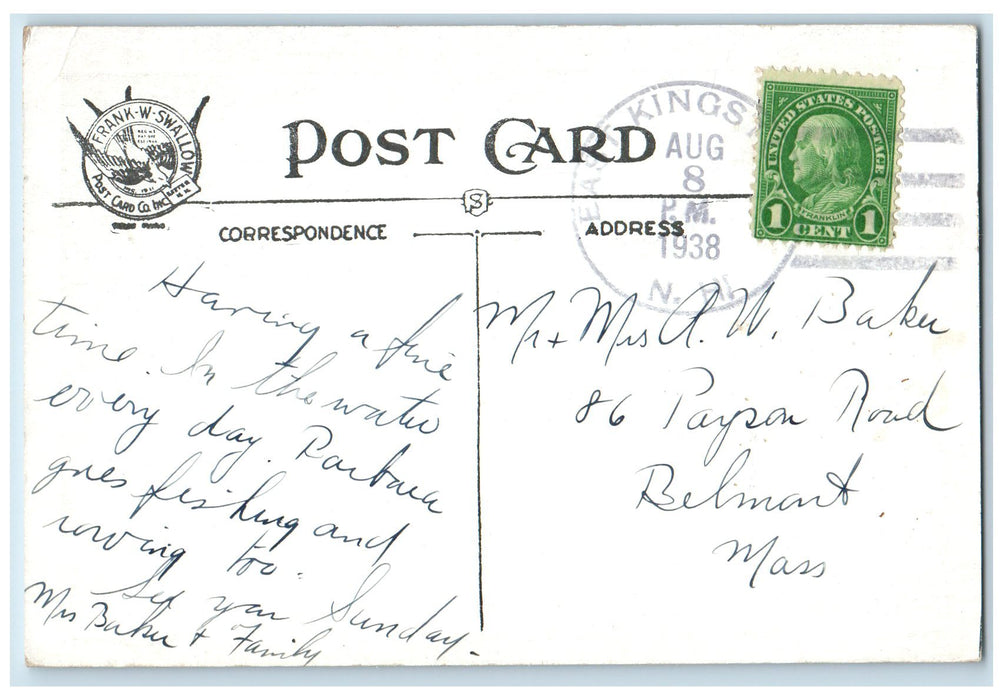 FRANK-W-SWALLOW
POST CARD CO. INC
POST CARD
EAST KINGSTON
AUG
8
P.M.
1938
N. H.
UNITED STATES POSTAGE
FRANKLIN
1 CENT 1
S
CORRESPONDENCE
ADDRESS
Having a fine
time. In the water
every day. Barbara
goes fishing and
rowing too.
See you Sunday.
Mrs Baker & Family
Mr + Mrs A. W. Baker
86 Payson Road
Belmont
Mass